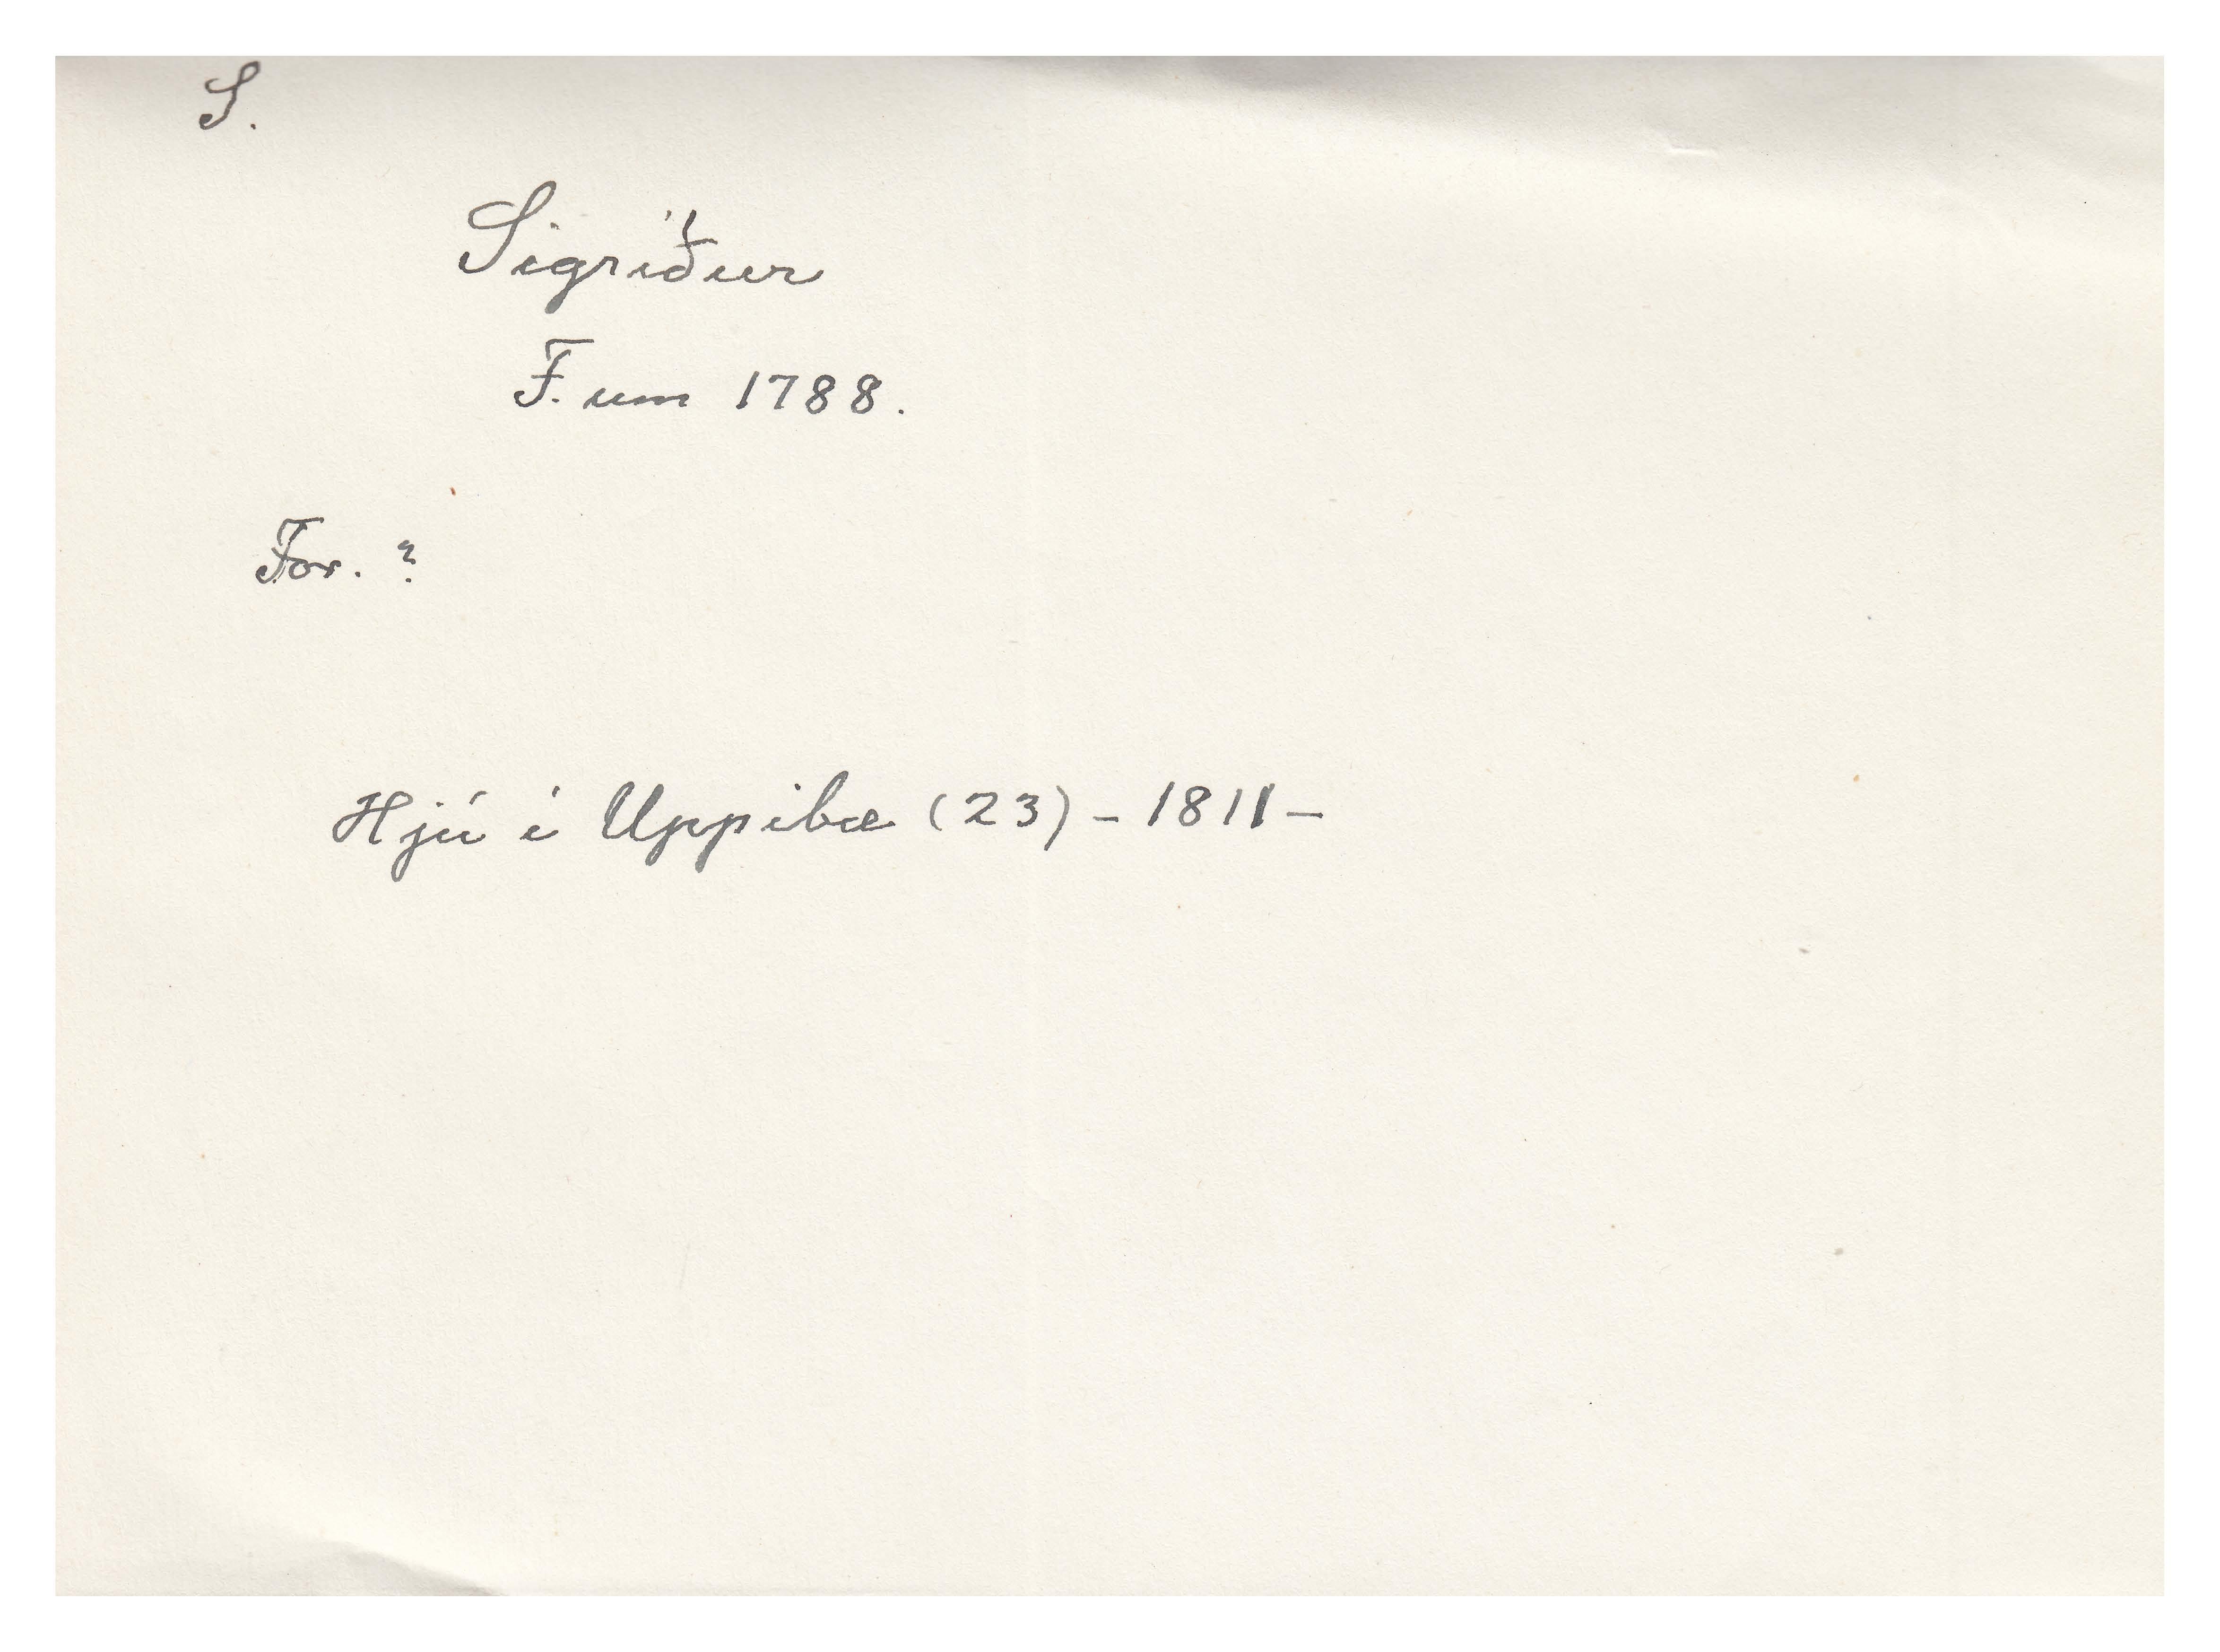 S.
Sigríður
F. um 1788.
For. ?
Hjú í Uppibæ (23) – 1811 –